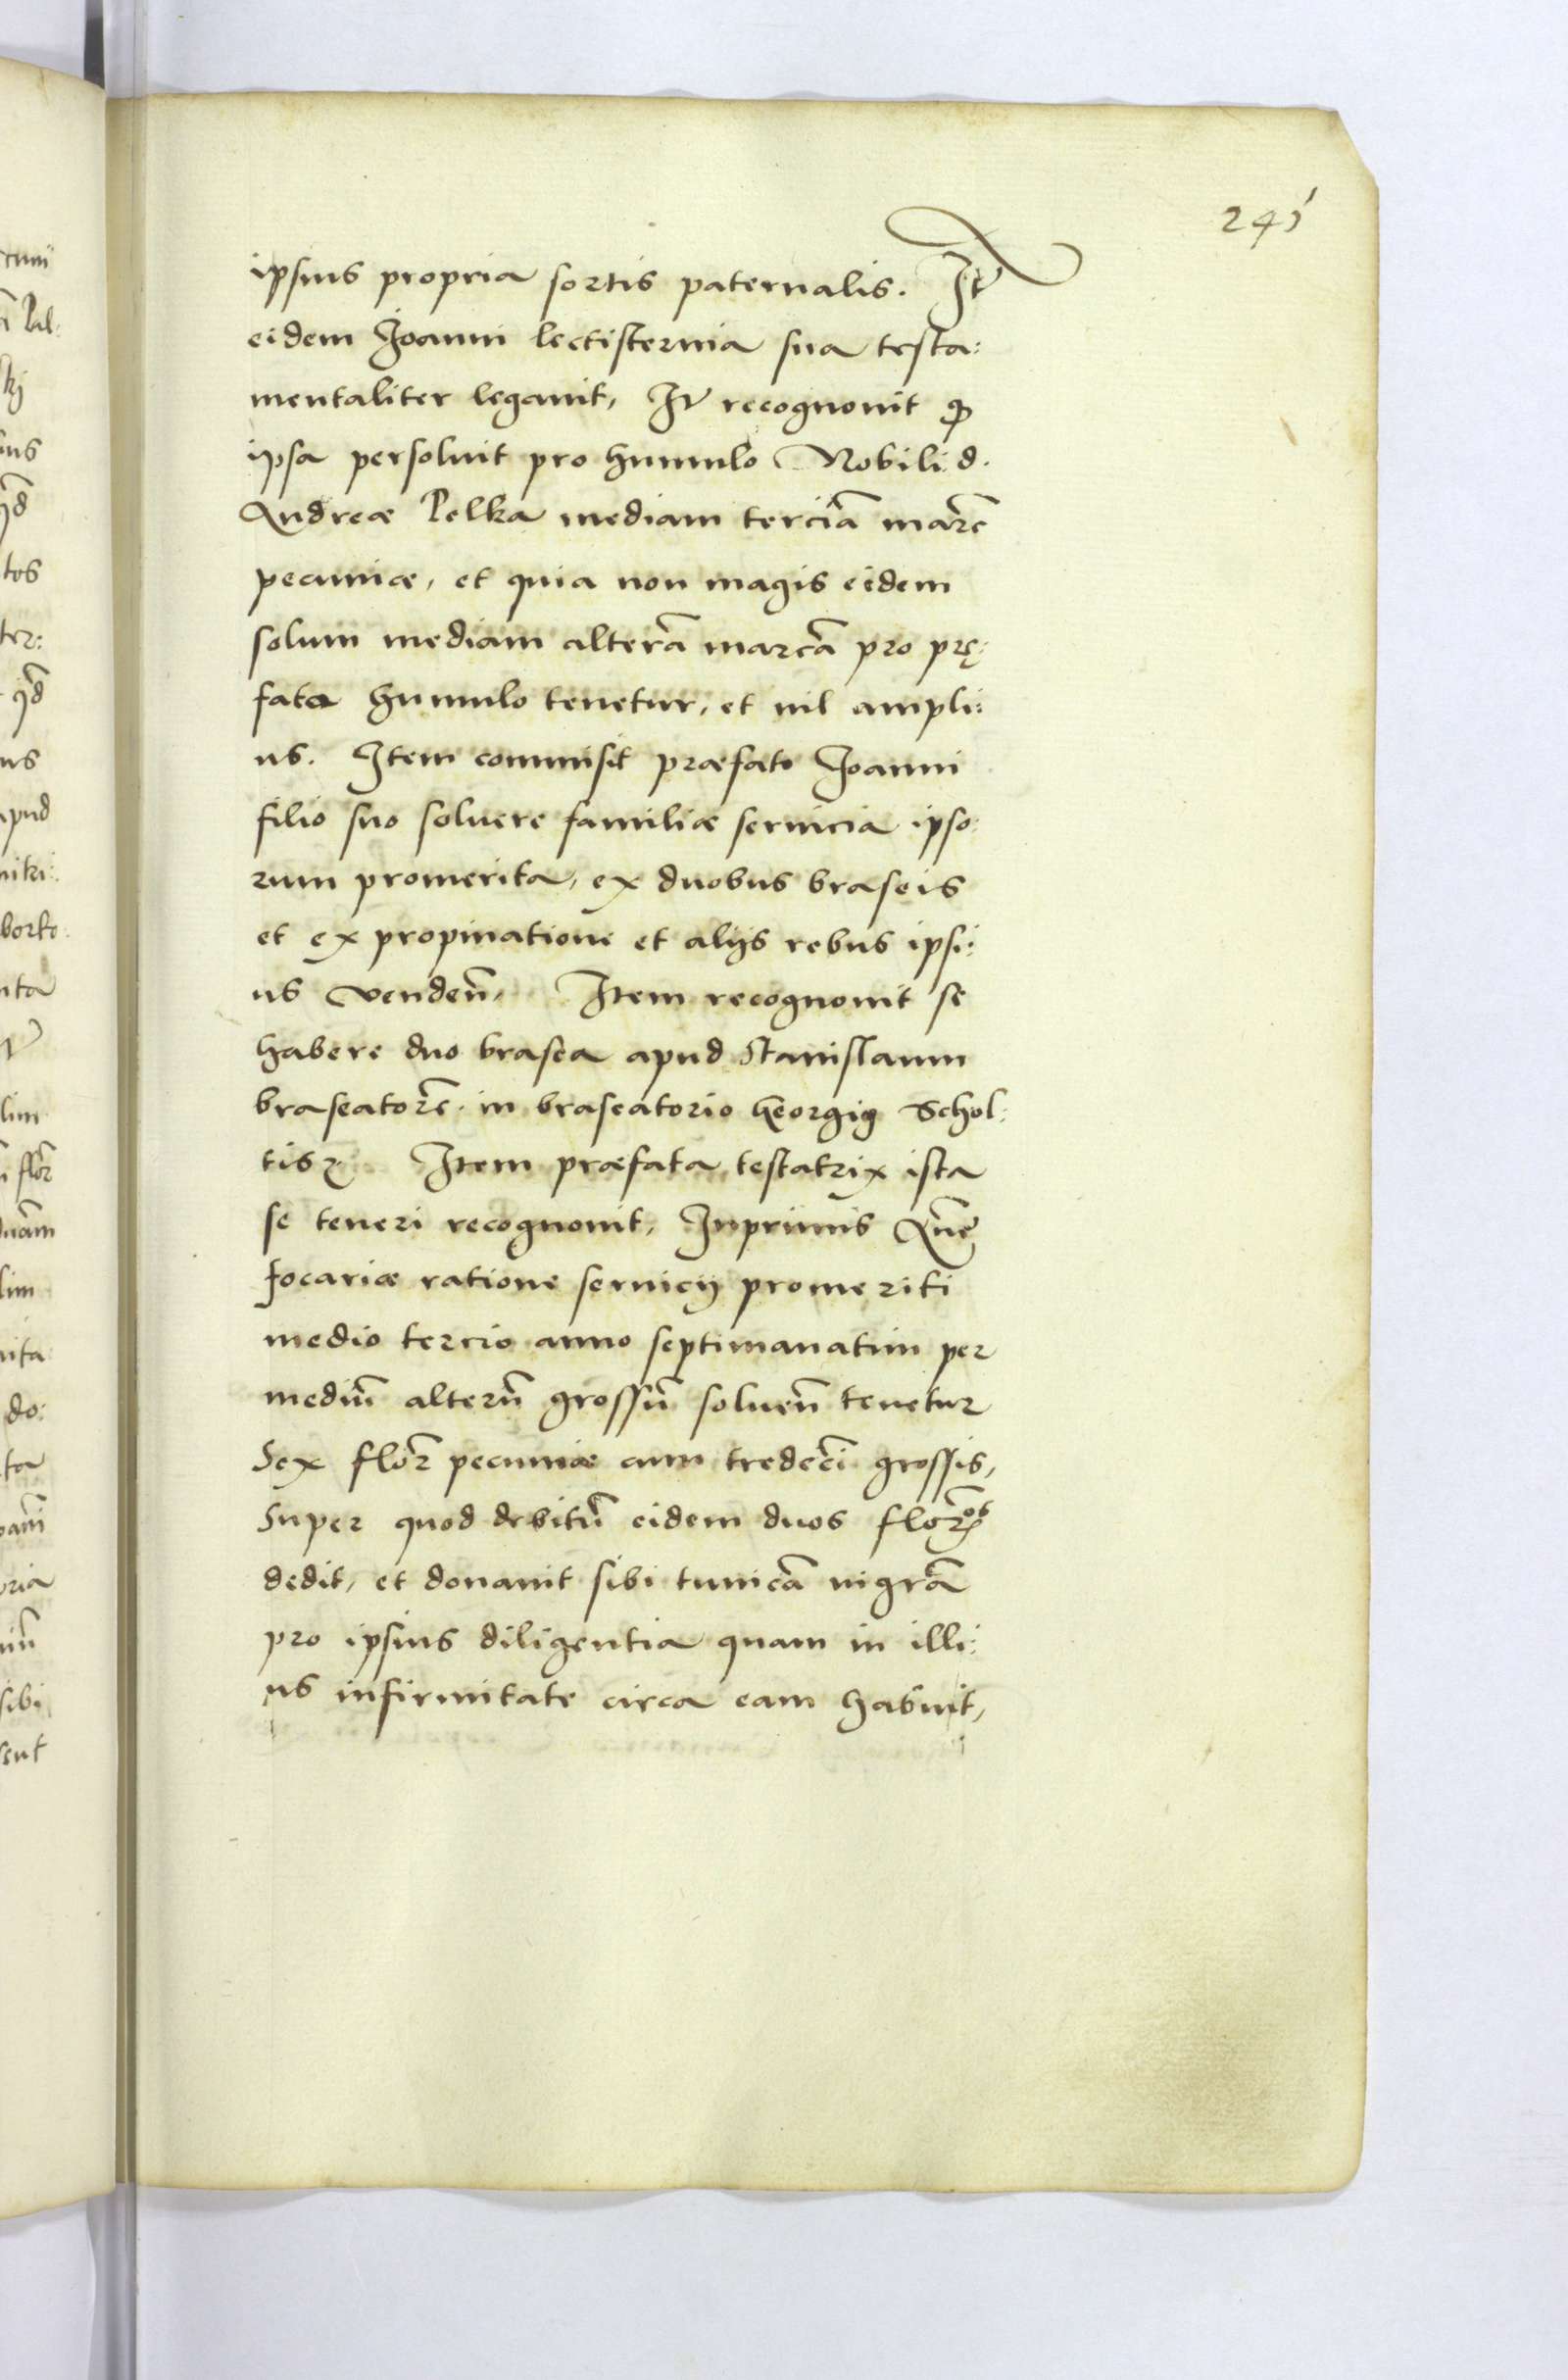 241
ipsius propria sortis paternalis. Itē
eidem Joanni lectisternia sua testa:
mentaliter legauit, Itē recognouit ꝙ
ipsa persoluit pro humulo Nobili d.
Andreæ Pelka mediam terciā marcē
pecuniæ, et quia non magis eidem
solum mediam alterā marcā pro prę:
fato humulo tenetur, et nil ampli:
us. Item commisit præfato Joanni
filio suo soluere familiæ seruicia ipso:
rum promerita, ex duobus braseis
et ex propinatione et alijs rebus ipsi:
us vendeñ, Item recognouit se
habere duo brasea apud Stanislaum
braseatorē in braseatorio Georgij Schol:
tisz. Item præfata testatrix ista
se teneri recognouit, Inprimis Añe
focariæ ratione seruicij promeriti
medio tercio anno septimanatim per
mediū alterū grossū soluen̄ tenetur
Sex flor̄ pecuniæ cum tredecī grossis,
Super quod debitū eidem duos flor̄os
dedit, et donauit sibi tunicā nigrā
pro ipsius diligentia quam in illi:
us infirmitate circa eam habuit,